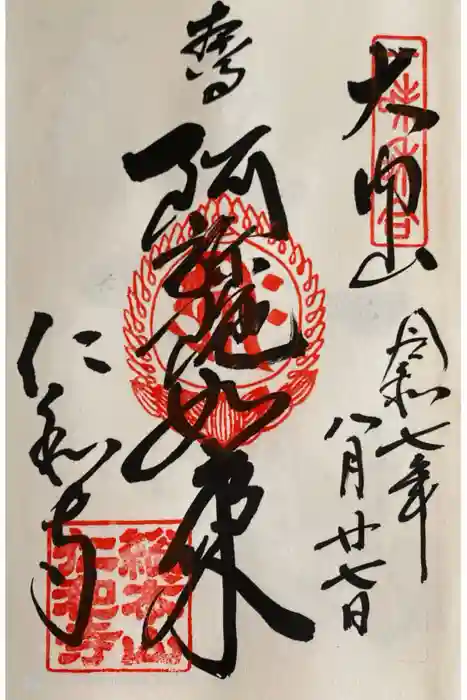 大内山
令和七年
八月廿七日
阿弥陀如来
仁和寺
総本山
仁和寺